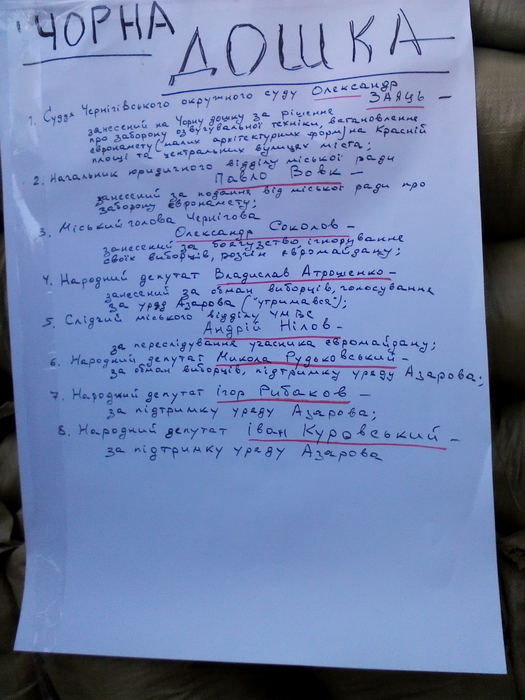 ЧОРНА
ДОШКА
1. Суддя Чернігівського окружного суду Олександр
ЗАЯЦЬ –
занесений на Чорну дошку за рішення
про заборону озвучувальної техніки, встановлення
євронамету (малих архітектурних форм) на Красній
площі та центральних вулицях міста;
2. Начальник юридичного відділу міської ради
Павло Вовк –
занесений за подання від міської ради про
заборону євронамету;
3. Міський голова Чернігова
Олександр Соколов –
занесений за боягузтво, ігнорування
своїх виборців, розгін євромайдану;
4. Народний депутат Владислав Атрошенко –
занесений за обман виборців, голосування
за уряд Азарова ("утримався");
5. Слідчий міського відділу УМВС
Андрій Нілов –
за переслідування учасника євромайдану;
6. Народний депутат Микола Рудьковський –
за обман виборців, підтримку уряду Азарова;
7. Народний депутат Ігор Рибаков –
за підтримку уряду Азарова;
8. Народний депутат Іван Куровський –
за підтримку уряду Азарова